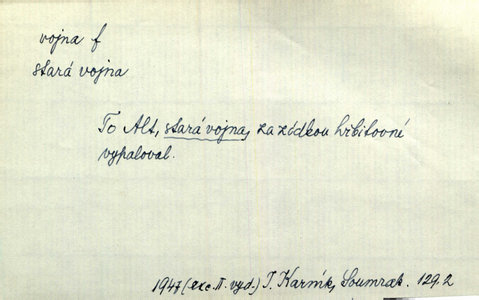 vojna f
stará vojna
To Alt, stará vojna, za zídkou hřbitovné
vypaloval.
1947 (exc. II. vyd.) J. Karník, Soumrak. 129.2